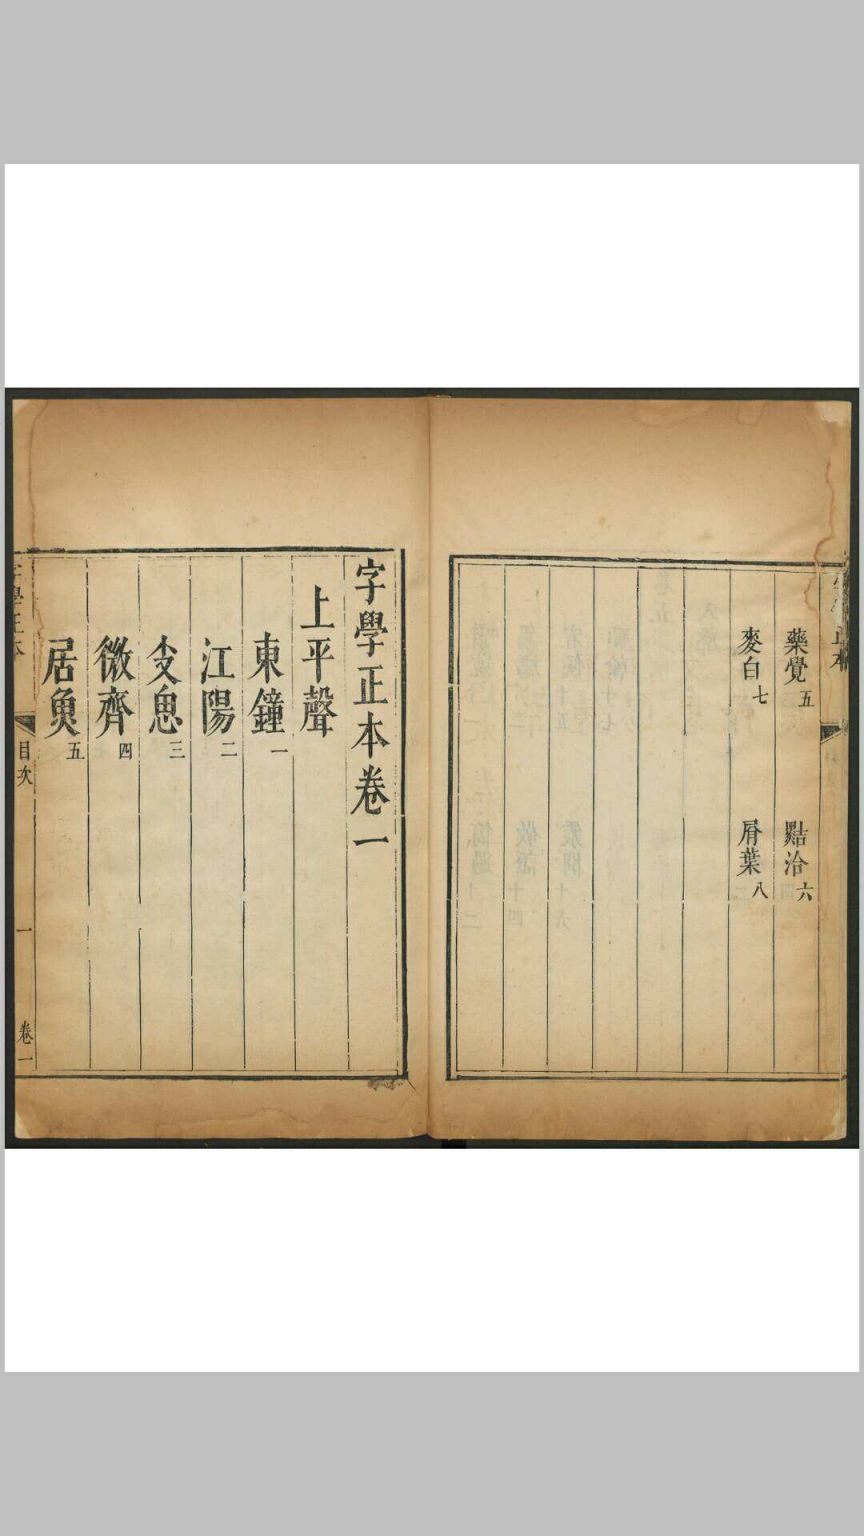 藥覺五　黠洽六
麥白七　屑葉八
字學正本卷一
上平聲
東鐘一
江陽二
支恖三
微齊四
居魚五
字學正本　目次　一　卷一